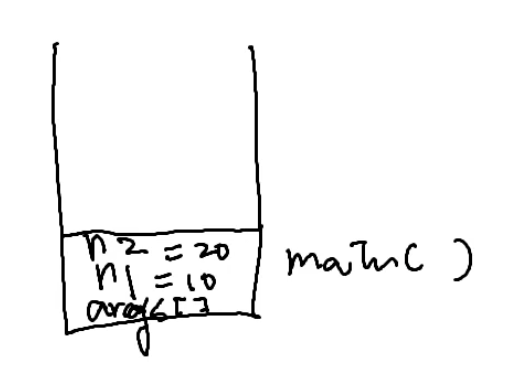 n2 = 20
n1 = 10
args[]
main( )